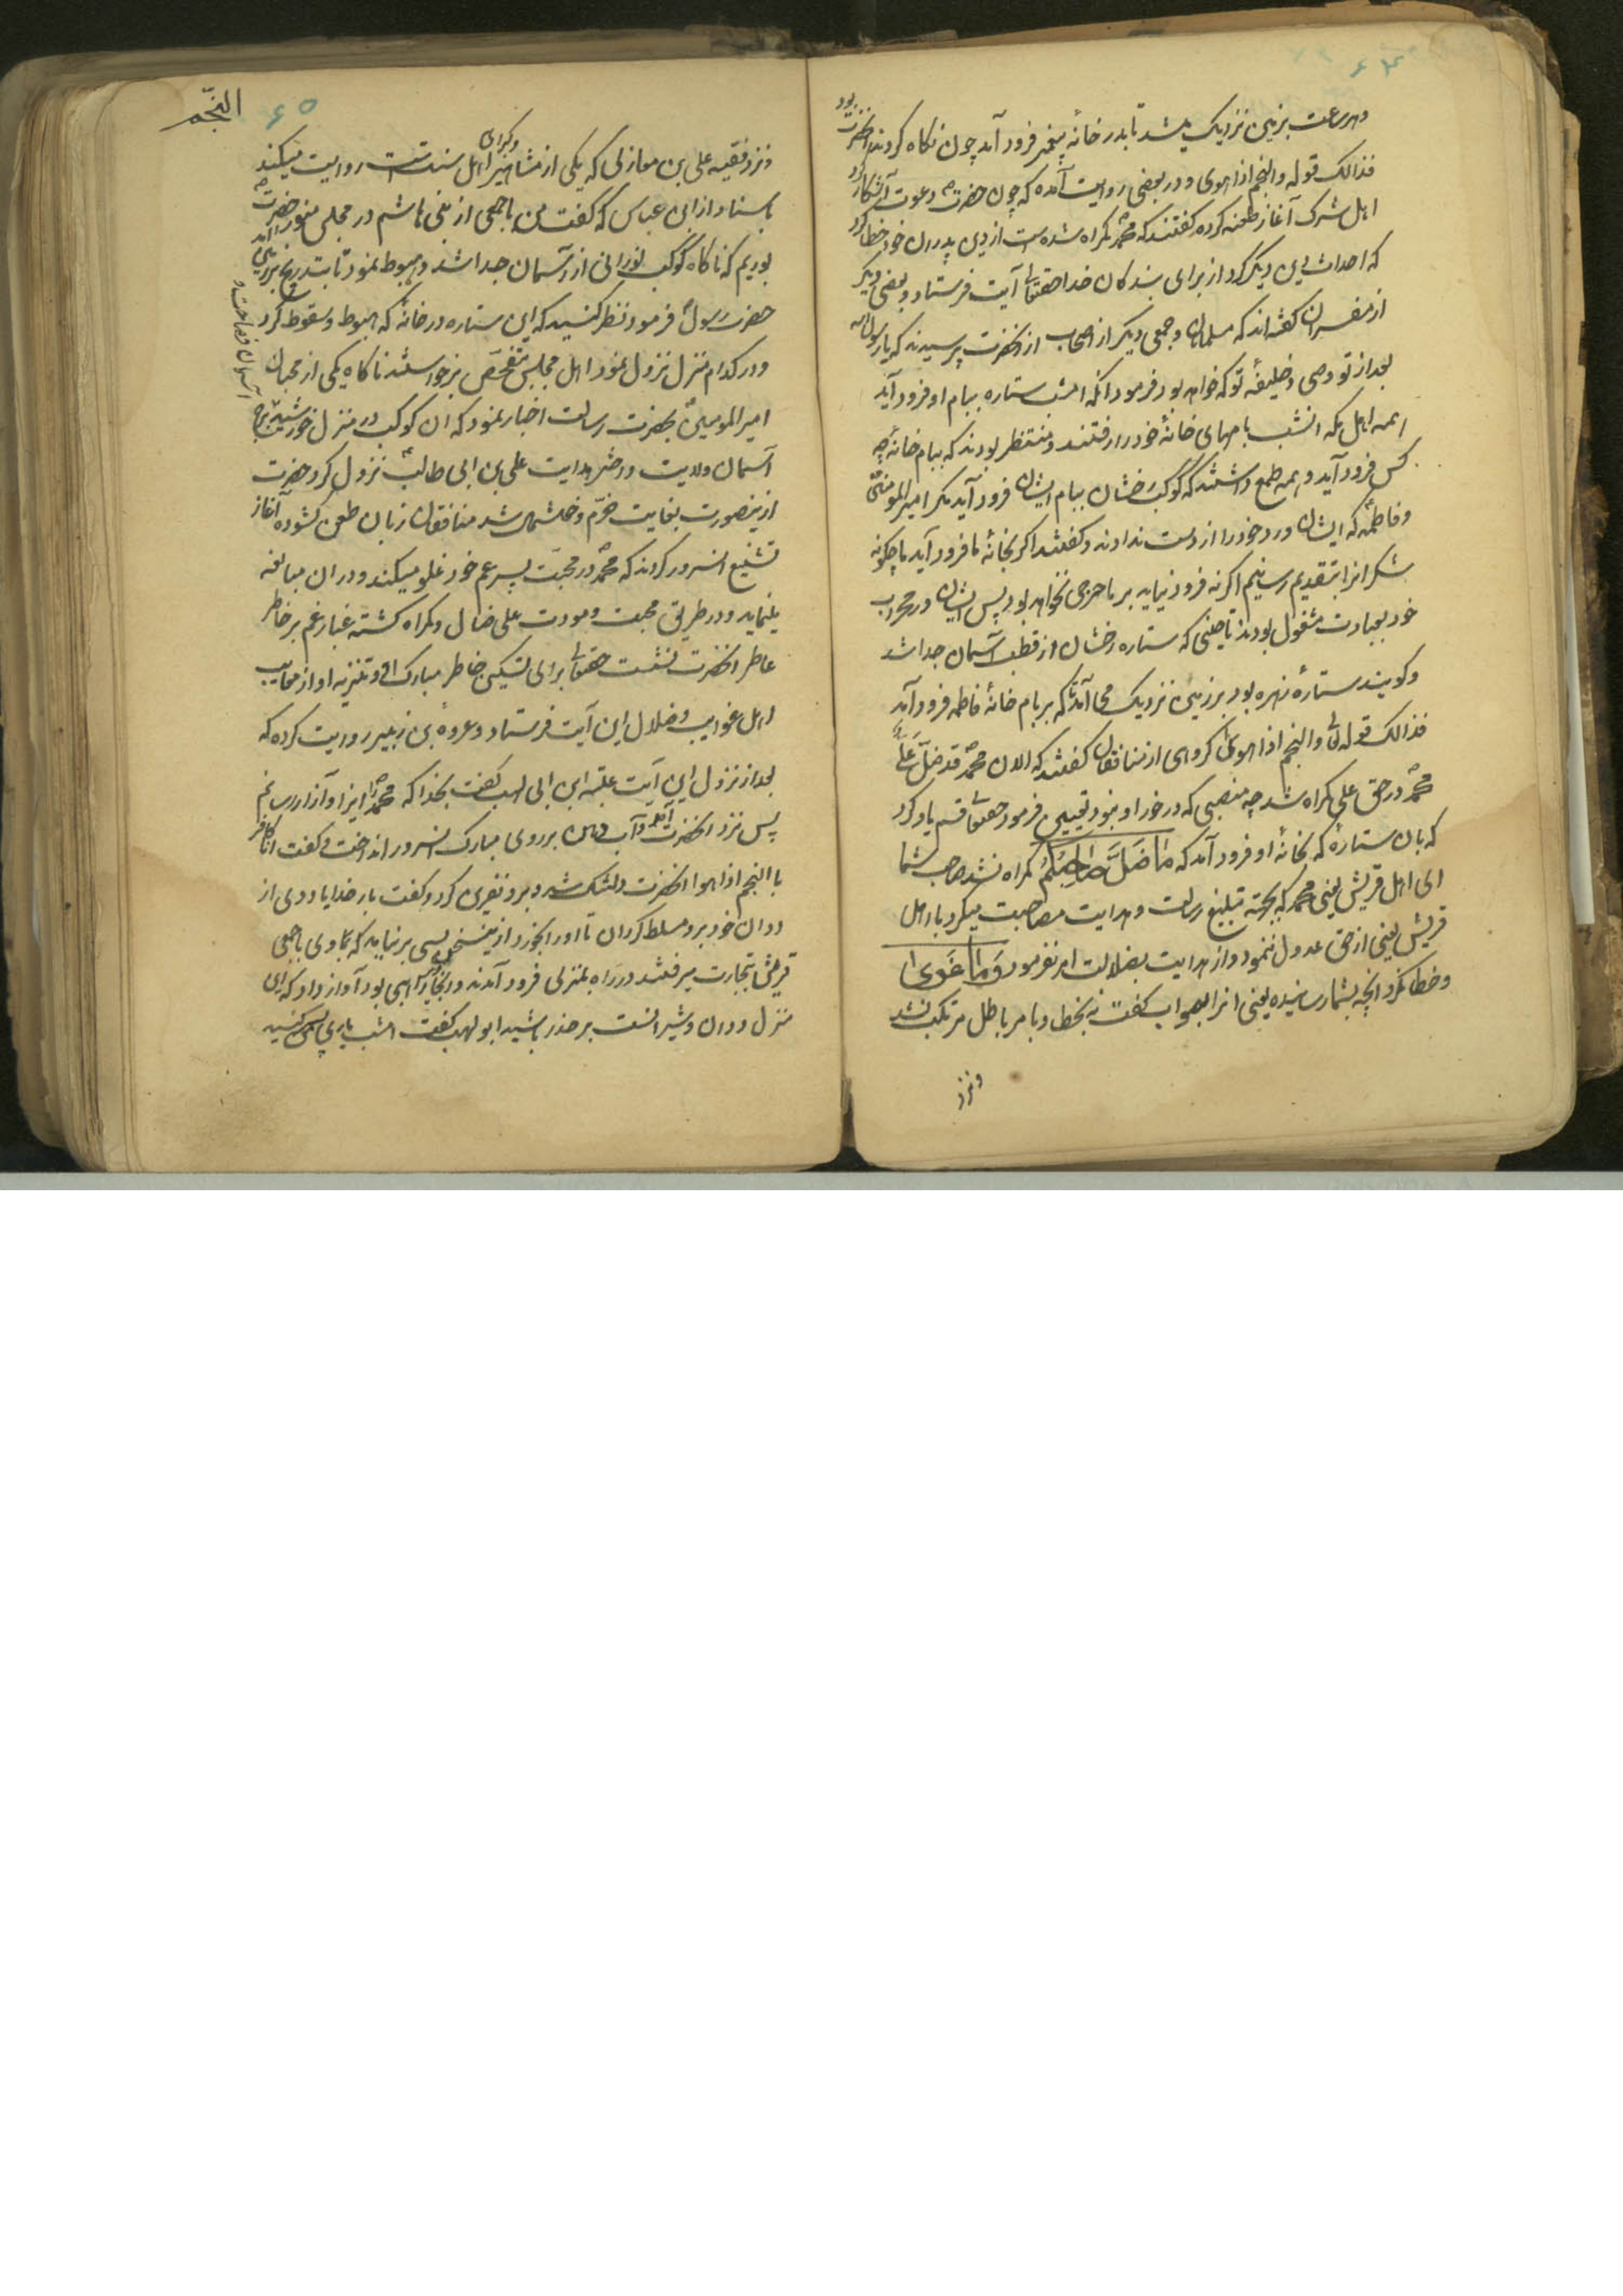 ۶۴
وهر ساعت بزمین نزدیک میشد تا بدر خانه پیغمبر فرود آمد چون نکاه کردند انحضرت بود
فذالک قوله والنجم اذا هوی و در بعضی روایت آمده که چون حضرت دعوت آشکار کرد
اهل شرک آغاز طعنه کرده کفتند که محمد کمراه شده است از دین پدران خود خطا کرد
که احداث دین دیکر کرد از برای بندکان خدا حقتعالی آیت فرستاد و بعضی دیکر
از مفسران کفته‌اند که مسلمانان و جمعی دیکر از اصحاب از انحضرت پرسیدند که یا رسول الله
بعد از تو وصی و خلیفه تو که خواهد بود فرمود انکه امشب ستاره ببام او فرود آید
همه اهل مکه انشب بامهای خانهٔ خود را رفتند و منتظر بودند که ببام خانهٔ چه
کس فرود آید و همه طمع داشتند که کوکب رخشان ببام ایشان فرود آید مکر امیرالمؤمنین
و فاطمه که ایشان ورد خود را از دست ندادند و کفتند اکر بخانهٔ ما فرود آید ما چکونه
شکر انرا بتقدیم رسانیم اکر نه فرود نیاید بر ما حرجی نخواهد بود پس ایشان در محراب
خود بعبادت مشغول بودند تا حینی که ستاره رخشان از قطب آسمان جدا شد
و کویند ستارهٔ زهره بود بزمین نزدیک می آمد تا که بر بام خانهٔ فاطمه فرود آمد
فذالک قوله تعالی والنجم اذا هوی کروهی از منافقان کفتند که الان محمد قد ضل علی
محمد در حق علی کمراه شد چه منصبی که در خور او نبود تعیین فرمود حقتعالی قسم یاد کرد
که بان ستارهٔ که بخانهٔ او فرود آمد که مَا ضَلَّ صَاحِبُکُم کمراه نشد صاحب شما
ای اهل قریش یعنی محمد که بجهته تبلیغ رسالت و هدایت مصاحبت میکرد با اهل
قریش یعنی از حق عدول ننمود و از هدایت بضلالت امر نفرمود وَمَا غَوَی
و خطا نکرد انچه بشما رسانیده یعنی انرا بصواب کفت نه بخطا و بامر باطل مرتکب نشد
ونزد
النجّم
۶۵
ونزد فقیه علی بن مغازلی که یکی از مشاهیر و کبرای اهل سنت است روایت میکند
باسناد از ابن عباس که کفت من با جمعی از بنی هاشم در مجلس منور حضرت
بودیم که ناکاه کوکب نورانی از آسمان جدا شد و هبوط نمود تا بتدریج بزمین آمد
حضرت رسول فرمود نظر کنید که این ستاره در خانهٔ که هبوط و سقوط کرد
و در کدام منزل نزول نمود اهل مجلس بتفحص برخواستند ناکاه یکی از محبان
امیرالمؤمنین بحضرت رسالت اخبار نمود که ان کوکب در منزل خورشید برج
آسمان ولایت و اختر هدایت علی بن ابی طالب نزول کرد حضرت
از ینصورت بغایت خرّم و خوشحال شد منافقان زبان طعن کشوده آغاز
تشنیع انسرور کردند که محمد در محبت پسر عم خود غلو میکند و دران مبالغه
مینماید و در طریق محبت و مودت علی ضال و کمراه کشته غبار غم بر خاطر
عاطر انحضرت نشست حقتعالی برای تسکین خاطر مبارک او و تنزیه او از معایب
اهل غوایب و ضلال این آیت فرستاد و عروه بن زبیر روایت کرده که
بعد از نزول این آیت عتبه ابن ابی لهب کفت بخدا که محمد را ایزا و آزار رسانم
پس نزد انحضرت آمد و آب دهن بر روی مبارک انسرور انداخت و کفت انا کافر
با النجم اذا هوا انحضرت دلتنک شد و برو نفرین کرد و کفت بار خدایا ددی از
ددان خود برو مسلط کردان تا اورا بخورد از ینسخن بسی برنیامد که با وی با جمعی
قریش بتجارت میرفتند در راه بمنزلی فرود آمدند و در انجا راهبی بود آواز داد که این
منزل ددان و شیرانست بر حذر باشید ابو لهب کفت امشب یاری پسرم کنید